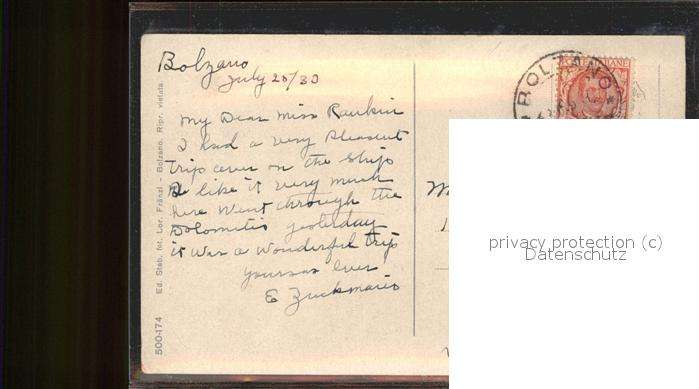 Bolzano
July 20/30
My Dear Miss Rankin
I had a very Pleasent
trip over on the Ship
like it very much
here Went through the
Dolomitis yesterday
it was a wonderful trip
yours as Ever
E
500-174 Ed. Stab. fot. Lor. Fränzl - Bolzano. Ripr. vietata
BOLZANO
privacy protection (c)
Datenschutz